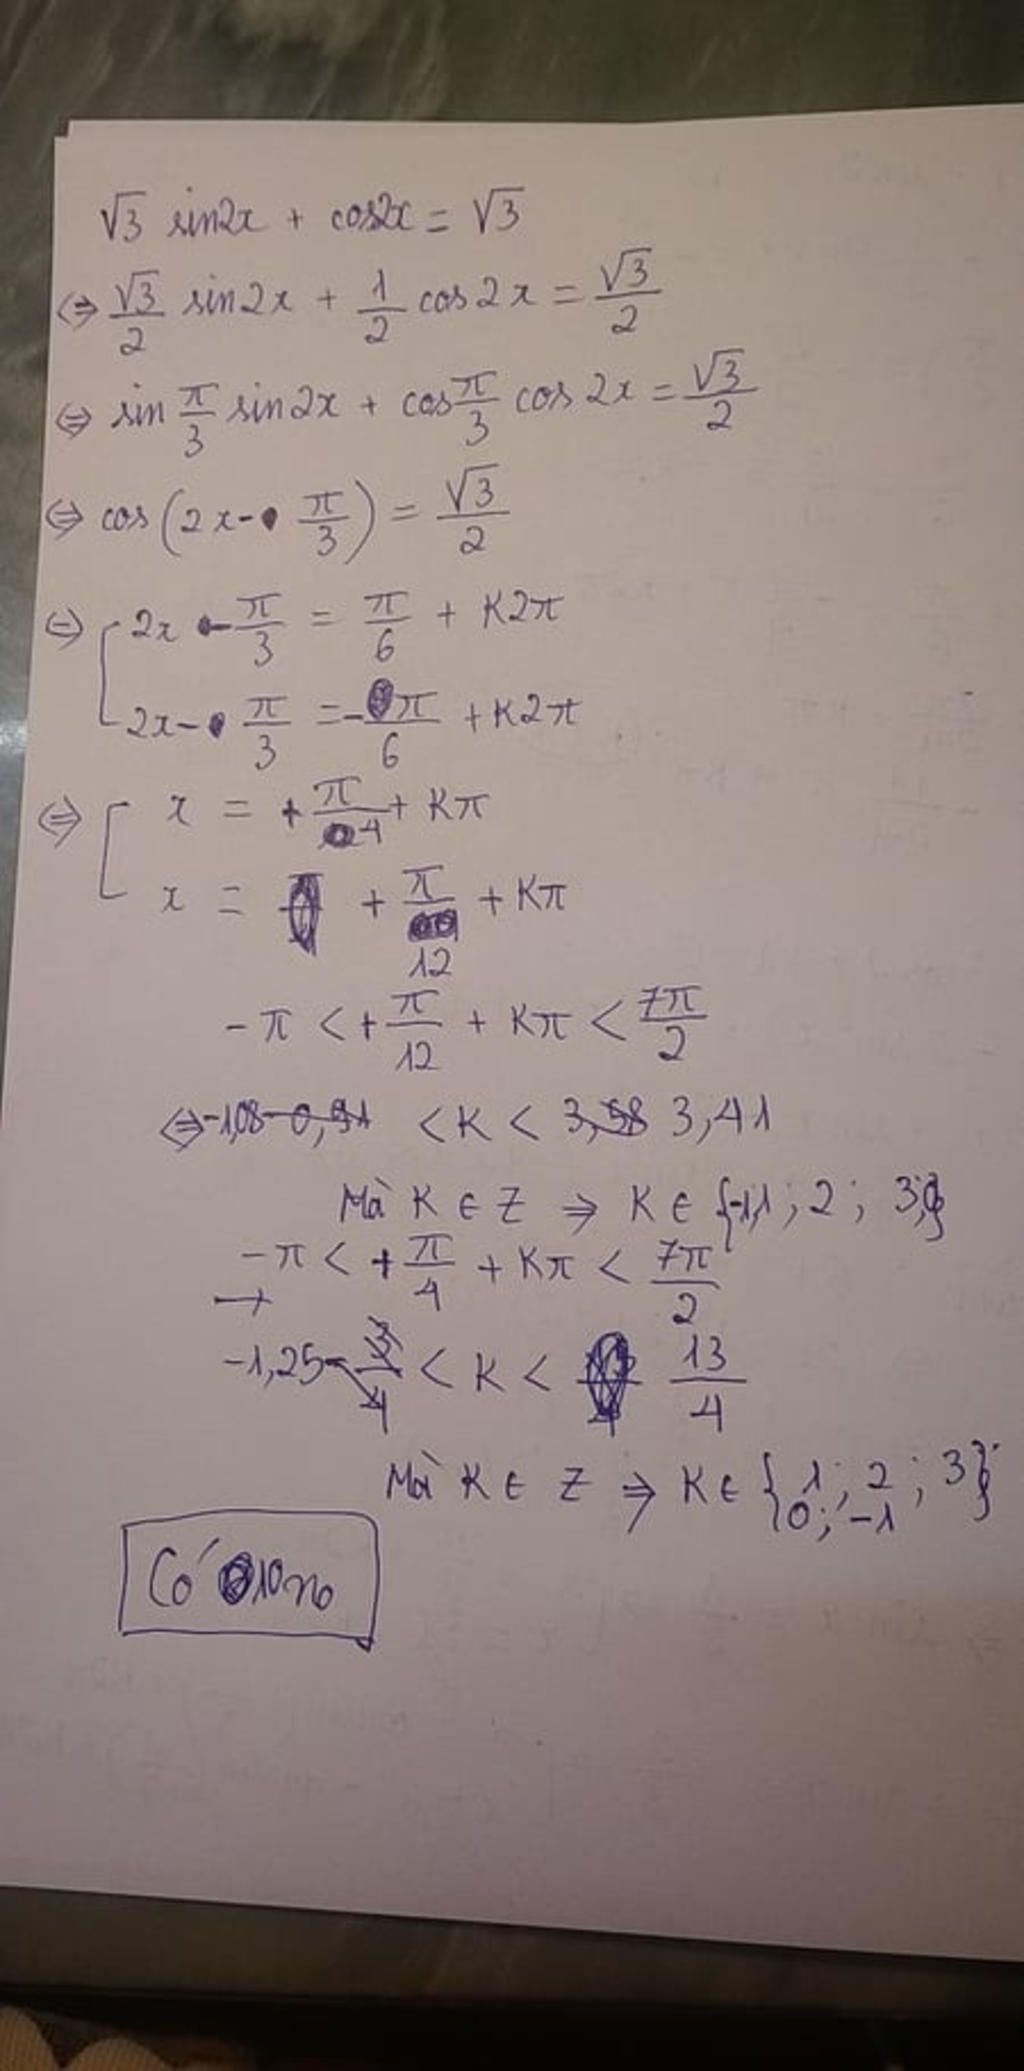 √3 sin2x + cos2x = √3
⇔ √3/2 sin2x + 1/2 cos2x = √3/2
⇔ sin π/3 sin2x + cos π/3 cos 2x = √3/2
⇔ cos (2x - π/3) = √3/2
⇔ [ 2x - π/3 = π/6 + K2π
2x - π/3 = -π/6 + K2π
⇔ [ x = + π/4 + Kπ
x = + π/12 + Kπ
-π < + π/12 + Kπ < 7π/2
⇔ -1,08 < K < 3,41
Mà K ∈ Z ⇒ K ∈ {-1,1 ; 2 ; 3;0}
-π < + π/4 + Kπ < 7π/2
→
-1,25 < K < 13/4
Mà K ∈ Z ⇒ K ∈ {1 ; 2 ; 3}
0 ; -1
Có 10 no